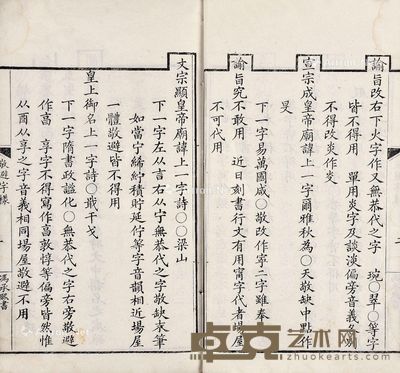 諭旨改右下火字作又無恭代之字 琬○翠○等字
皆不得用 單用炎字及談淡偏旁音義各別
不得改炎作
宣宗成皇帝廟諱上一字爾雅秋為○天敬缺中點作
旻
下一字易萬國咸○敬改作寧二字雖奉
諭旨究不敢用 近日刻書行文有用甯字代者場屋
不可代用
文宗顯皇帝廟諱上一字詩○○梁山
下一字左从言右从宁無恭代之字敬缺末筆
如當宁紵積貯延佇等字音韻相近場屋
一體敬避皆不得用
皇上御名上一字詩○戢干戈
下一字隋書政謐化○無恭代之字右旁敬避
作亯 享字不得寫作亯敦惇等偏旁皆然惟
从酉从享之字音義相同場屋敬避不用
敬避字樣
馮承熙書
卓克艺术网
zhuokearts.com